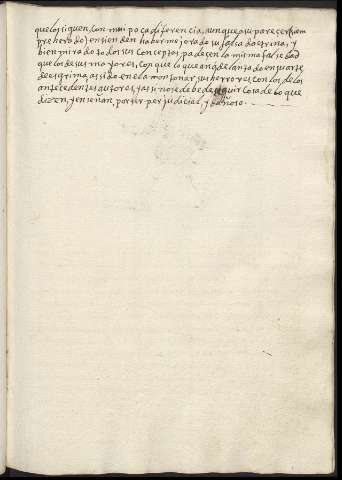 que los siguen, con muy poca diferencia, aunque a su parecer siem
pre herrado) entienden haber mejorado su falsa doctrina, y
bien mirado todos sus conceptos padecen la misma falsedad
que los de sus mayores, con que lo que an adelantado en su arte
de esgrima, a sido en el amontonar, sus herrores, con los de los
antecedentes autores, y assi no se debe de seguir cosa de lo que
dizen, y enseñan, por ser perjudicial, y dañoso.